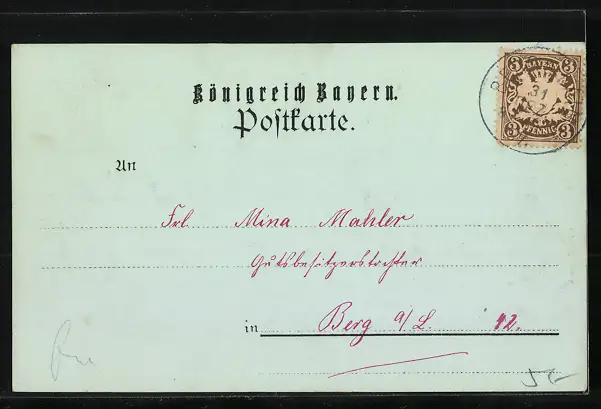 3 BAYERN 3
31
3 PFENNIG 3
Königreich Bayern.
Postkarte.
An
Frl. Mina Mahler
Gutsbesitzerstochter
in Berg a/L. 12.